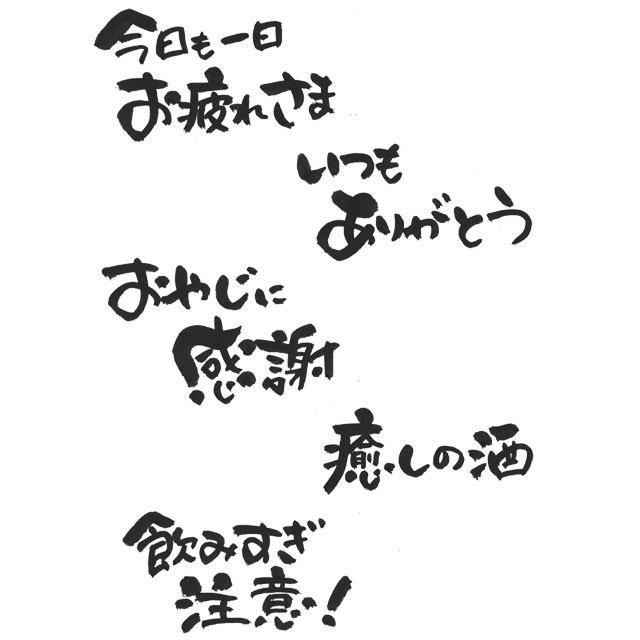 今日も一日
お疲れさま
いつも
ありがとう
おやじに
感謝
癒しの酒
飲みすぎ
注意!